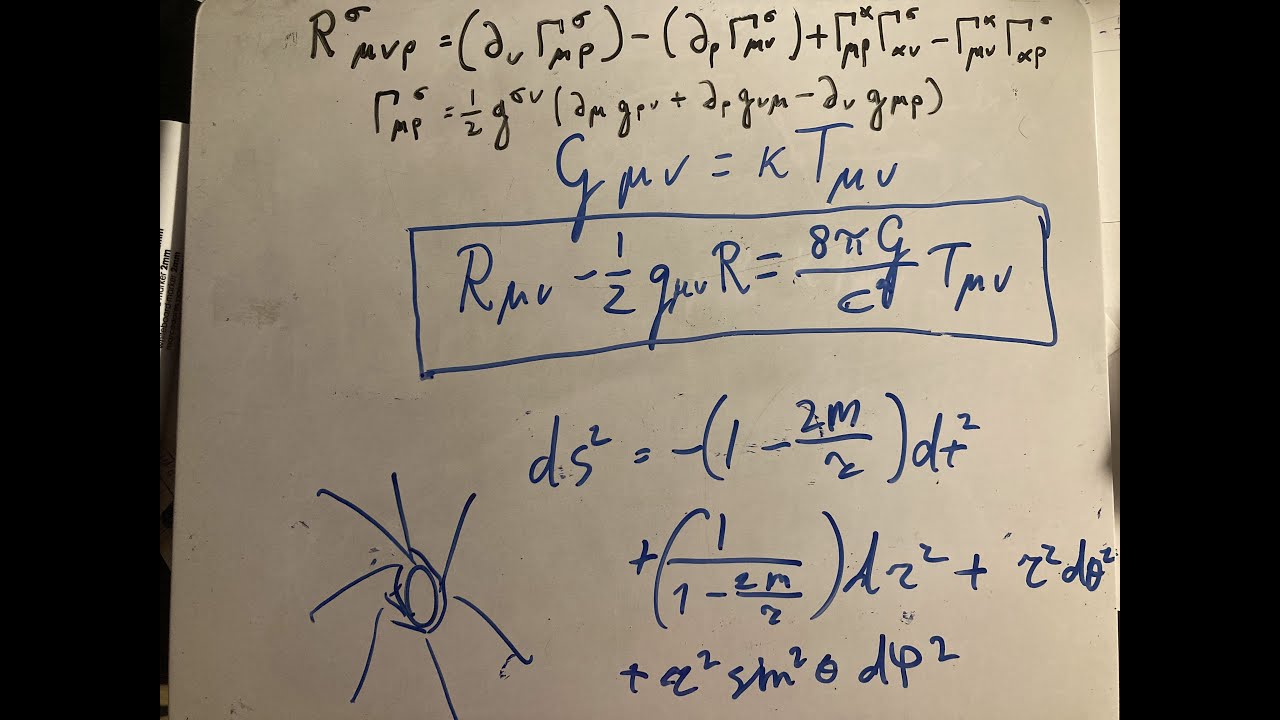 R^σ_μνρ = (∂_ν Γ^σ_μρ) - (∂_ρ Γ^σ_μν) + Γ^α_μρ Γ^σ_αν - Γ^α_μν Γ^σ_αρ
Γ^σ_μρ = 1/2 g^σν (∂_μ g_ρν + ∂_ρ g_νμ - ∂_ν g_μρ)
G_μν = κ T_μν
R_μν - 1/2 g_μν R = 8πG/c^4 T_μν
ds^2 = -(1 - 2m/r) dt^2
+ (1/(1 - 2m/r)) dr^2 + r^2 dθ^2
+ r^2 sin^2 θ dφ^2
marker 2mm